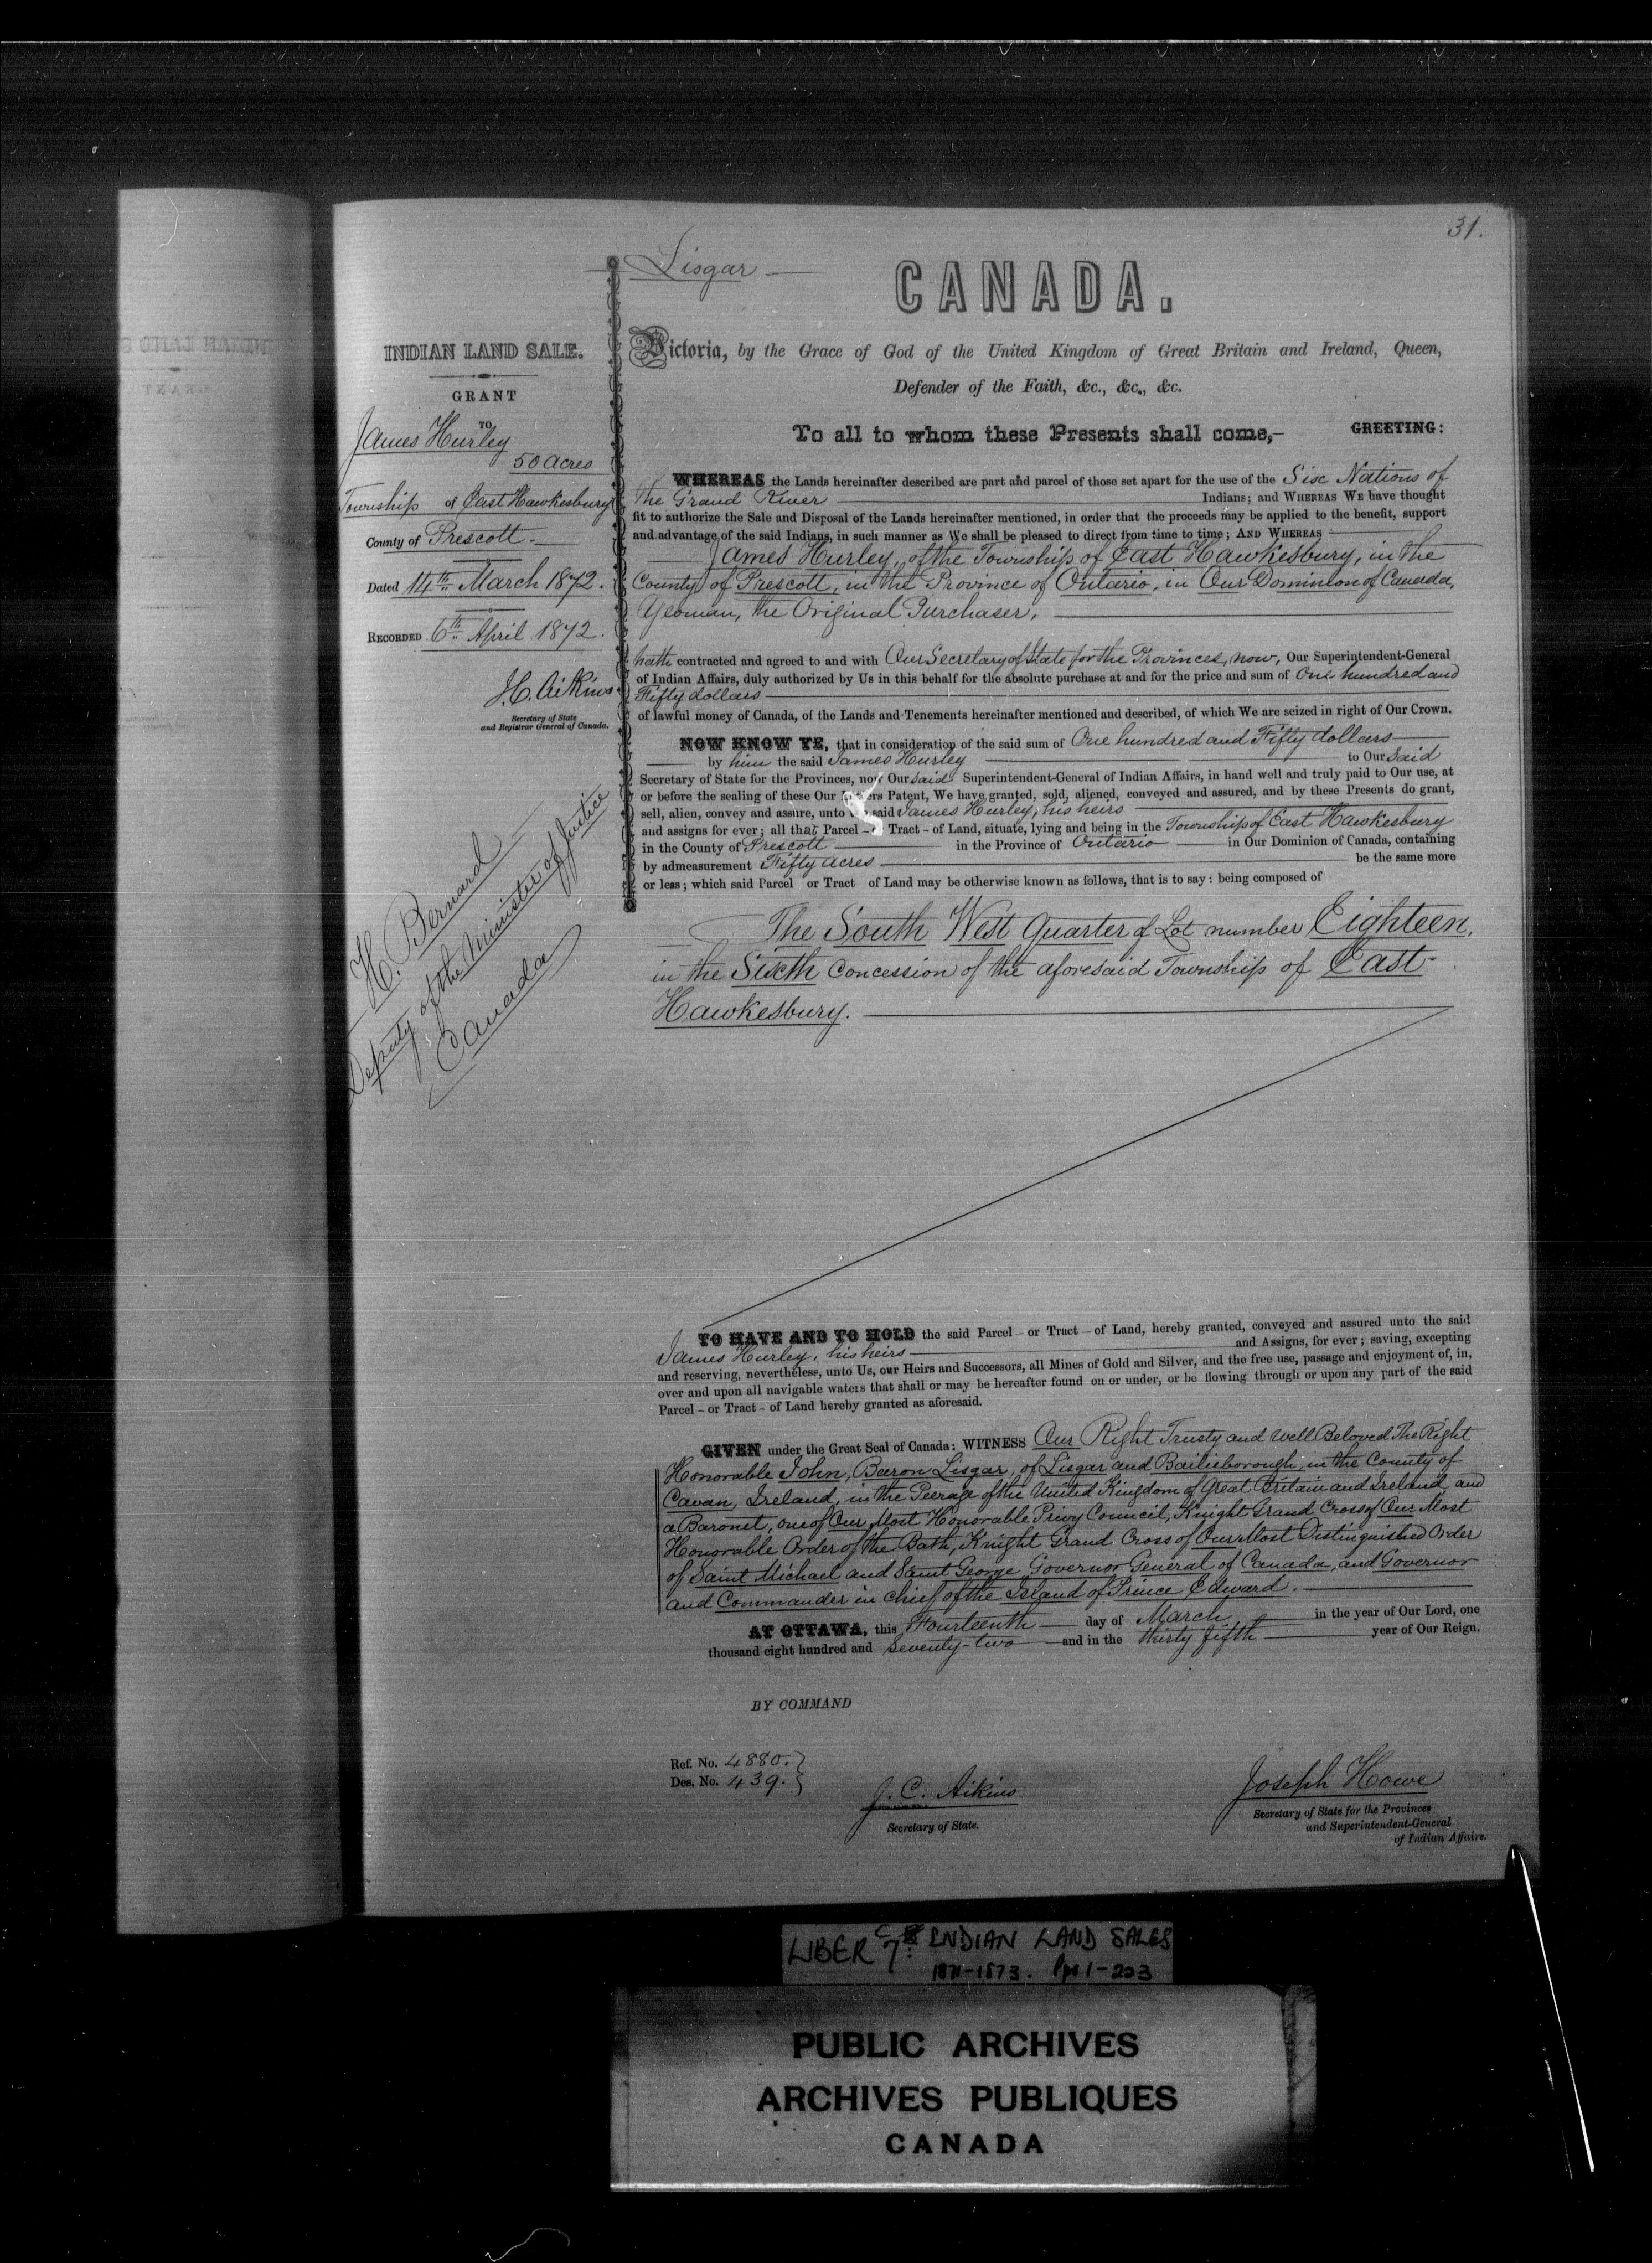 31.
Lisgar
CANADA.
INDIAN LAND SALE.
GRANT
TO
James Hurley
50 acres
Township of East Hawkesbury
County of Prescott.
Dated 14th March 1872.
RECORDED 6th April 1872.
J.C. Aikins
Secretary of State
and Registrar General of Canada.
H. Bernard
Deputy of the Minister of Justice
Canada
Victoria, by the Grace of God of the United Kingdom of Great Britain and Ireland, Queen,
Defender of the Faith, &c., &c., &c.
To all to whom these Presents shall come,— GREETING:
WHEREAS the Lands hereinafter described are part and parcel of those set apart for the use of the Six Nations of
the Grand River Indians; and WHEREAS WE have thought
fit to authorize the Sale and Disposal of the Lands hereinafter mentioned, in order that the proceeds may be applied to the benefit, support
and advantage of the said Indians, in such manner as We shall be pleased to direct from time to time; AND WHEREAS
James Hurley, of the Township of East Hawkesbury, in the
County of Prescott, in the Province of Ontario, in Our Dominion of Canada,
Yeoman, the Original Purchaser,
hath contracted and agreed to and with Our Secretary of State for the Provinces, now, Our Superintendent-General
of Indian Affairs, duly authorized by Us in this behalf for the absolute purchase at and for the price and sum of One hundred and
Fifty dollars
of lawful money of Canada, of the Lands and Tenements hereinafter mentioned and described, of which We are seized in right of Our Crown.
NOW KNOW YE, that in consideration of the said sum of One hundred and Fifty dollars
by him the said James Hurley to Our Said
Secretary of State for the Provinces, now Our said Superintendent-General of Indian Affairs, in hand well and truly paid to Our use, at
or before the sealing of these Our Letters Patent, We have granted, sold, aliened, conveyed and assured, and by these Presents do grant,
sell, alien, convey and assure, unto the said James Hurley, his heirs
and assigns for ever; all that Parcel – or Tract – of Land, situate, lying and being in the Township of East Hawkesbury
in the County of Prescott in the Province of Ontario in Our Dominion of Canada, containing
by admeasurement Fifty acres be the same more
or less; which said Parcel or Tract of Land may be otherwise known as follows, that is to say: being composed of
The South West Quarter of Lot number Eighteen,
in the Sixth Concession of the aforesaid Township of East
Hawkesbury.
TO HAVE AND TO HOLD the said Parcel – or Tract – of Land, hereby granted, conveyed and assured unto the said
James Hurley, his heirs and Assigns, for ever; saving, excepting
and reserving, nevertheless, unto Us, our Heirs and Successors, all Mines of Gold and Silver, and the free use, passage and enjoyment of, in,
over and upon all navigable waters that shall or may be hereafter found on or under, or be flowing through or upon any part of the said
Parcel – or Tract – of Land hereby granted as aforesaid.
GIVEN under the Great Seal of Canada: WITNESS Our Right Trusty and Well Beloved The Right
Honorable John, Baron Lisgar, of Lisgar and Bailieborough, in the County of
Cavan, Ireland, in the Peerage of the United Kingdom of Great Britain and Ireland, and
a Baronet, one of Our Most Honorable Privy Council, Knight Grand Cross of Our Most
Honorable Order of the Bath, Knight Grand Cross of Our Most Distinguished Order
of Saint Michael and Saint George, Governor General of Canada, and Governor
and Commander in Chief of the Island of Prince Edward.
AT OTTAWA, this Fourteenth day of March in the year of Our Lord, one
thousand eight hundred and Seventy-two and in the thirty fifth year of Our Reign.
BY COMMAND
Ref. No. 4880.
Des. No. 439.
J. C. Aikins
Secretary of State.
Joseph Howe
Secretary of State for the Provinces
and Superintendent-General
of Indian Affairs.
LIBER C7: INDIAN LAND SALES
1871-1873. Pgs 1-203
PUBLIC ARCHIVES
ARCHIVES PUBLIQUES
CANADA